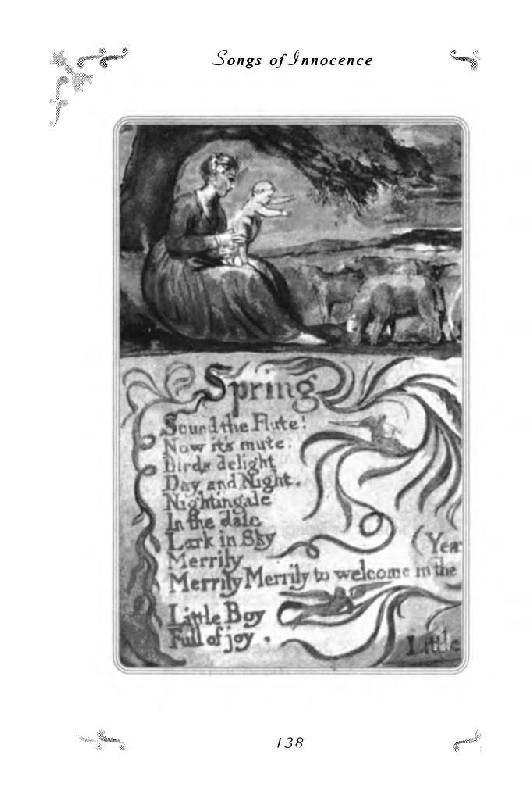 Songs of Innocence
Spring
Sound the Flute!
Now it's mute.
Birds delight
Day and Night.
Nightingale
In the dale
Lark in Sky
Merrily
Merrily Merrily to welcome in the
(Year
Little Boy
Full of joy.
Little
138